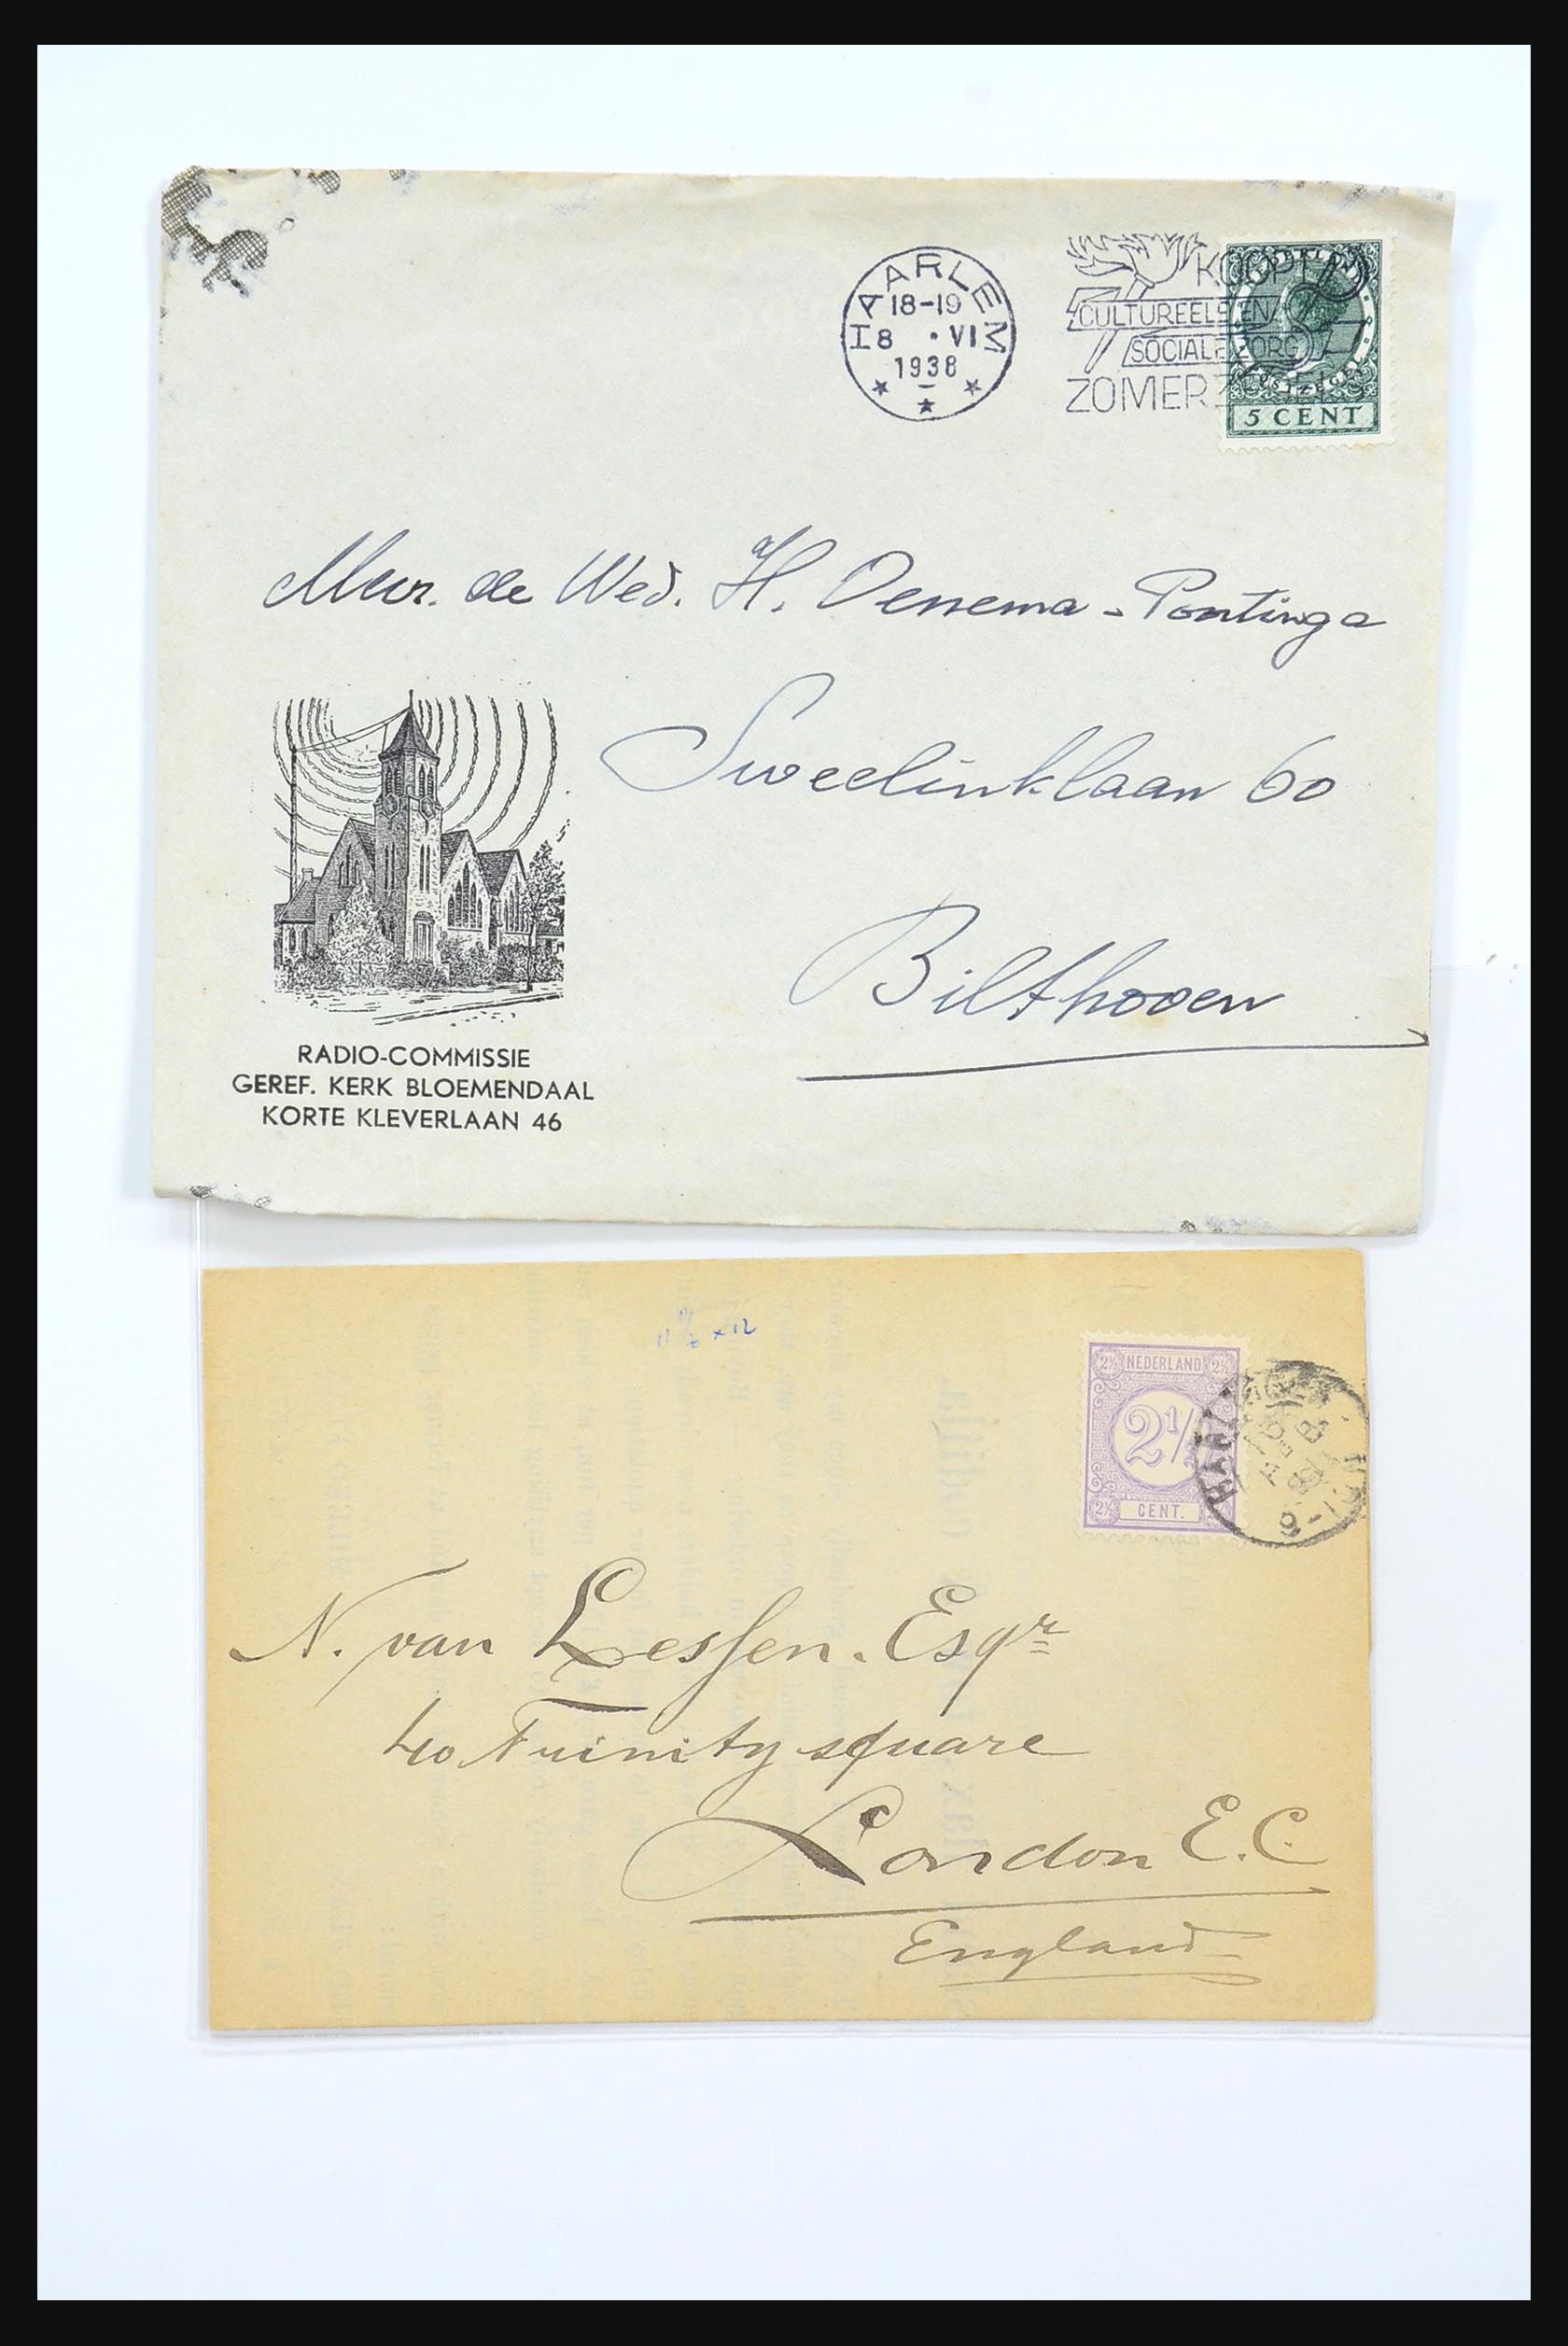 HAARLEM
18-19
8 · VI
1938
KOOPT
CULTUREELE EN
SOCIALE ZORG
ZOMERZEGELS
NEDERLAND
POSTZEGEL
5 CENT
Mevr. de Wed. H. Oenema - Pontinga
Sweelinklaan 60
Bilthoven
RADIO-COMMISSIE
GEREF. KERK BLOEMENDAAL
KORTE KLEVERLAAN 46
2½ NEDERLAND 2½
2½
2½ CENT.
N. van Lessen. Esqr
40 Trinity square
London E.C.
England